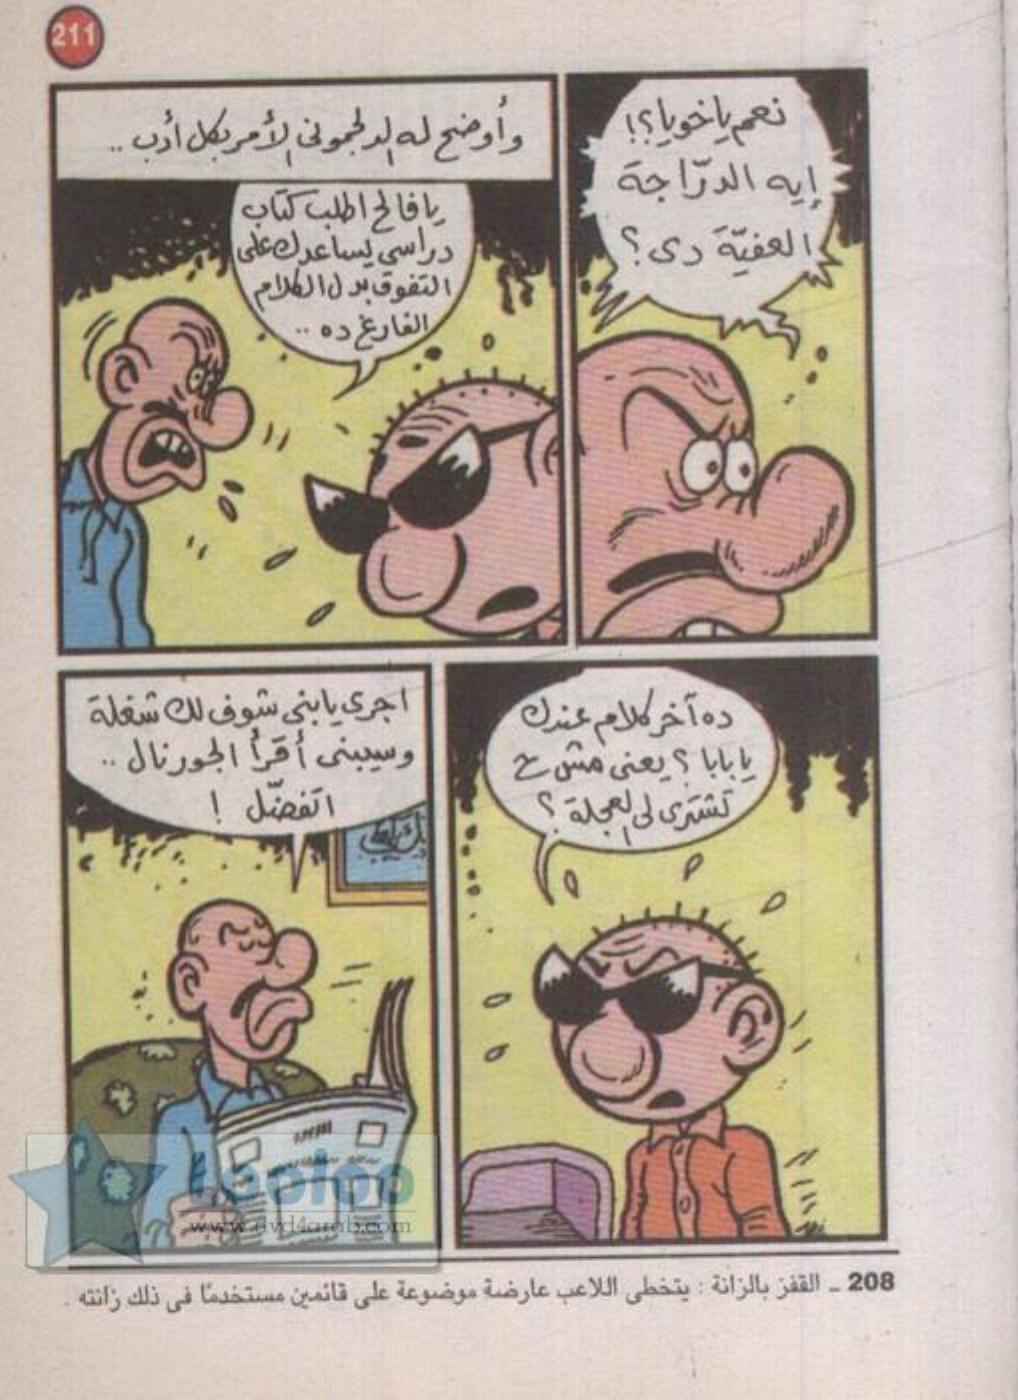 211
نعم ياخويا؟!
إيه الدرّاجة
العفيّة دى؟
وأوضح له الدلجمونى الأمر بكل أدب ..
يا فالح اطلب كتاب
دراسى يساعدك على
التفوق بدل الكلام
الفارغ ده ..
ده آخر كلام عندك
يا بابا؟ يعنى مش ح
تشترى لى العجلة؟
اجرى يابنى شوف لك شغلة
وسيبنى أقرأ الجورنال ..
اتفضّل !
www.dvd4arab.com
208 ـ القفز بالزانة : يتخطى اللاعب عارضة موضوعة على قائمين مستخدمًا فى ذلك زانته .